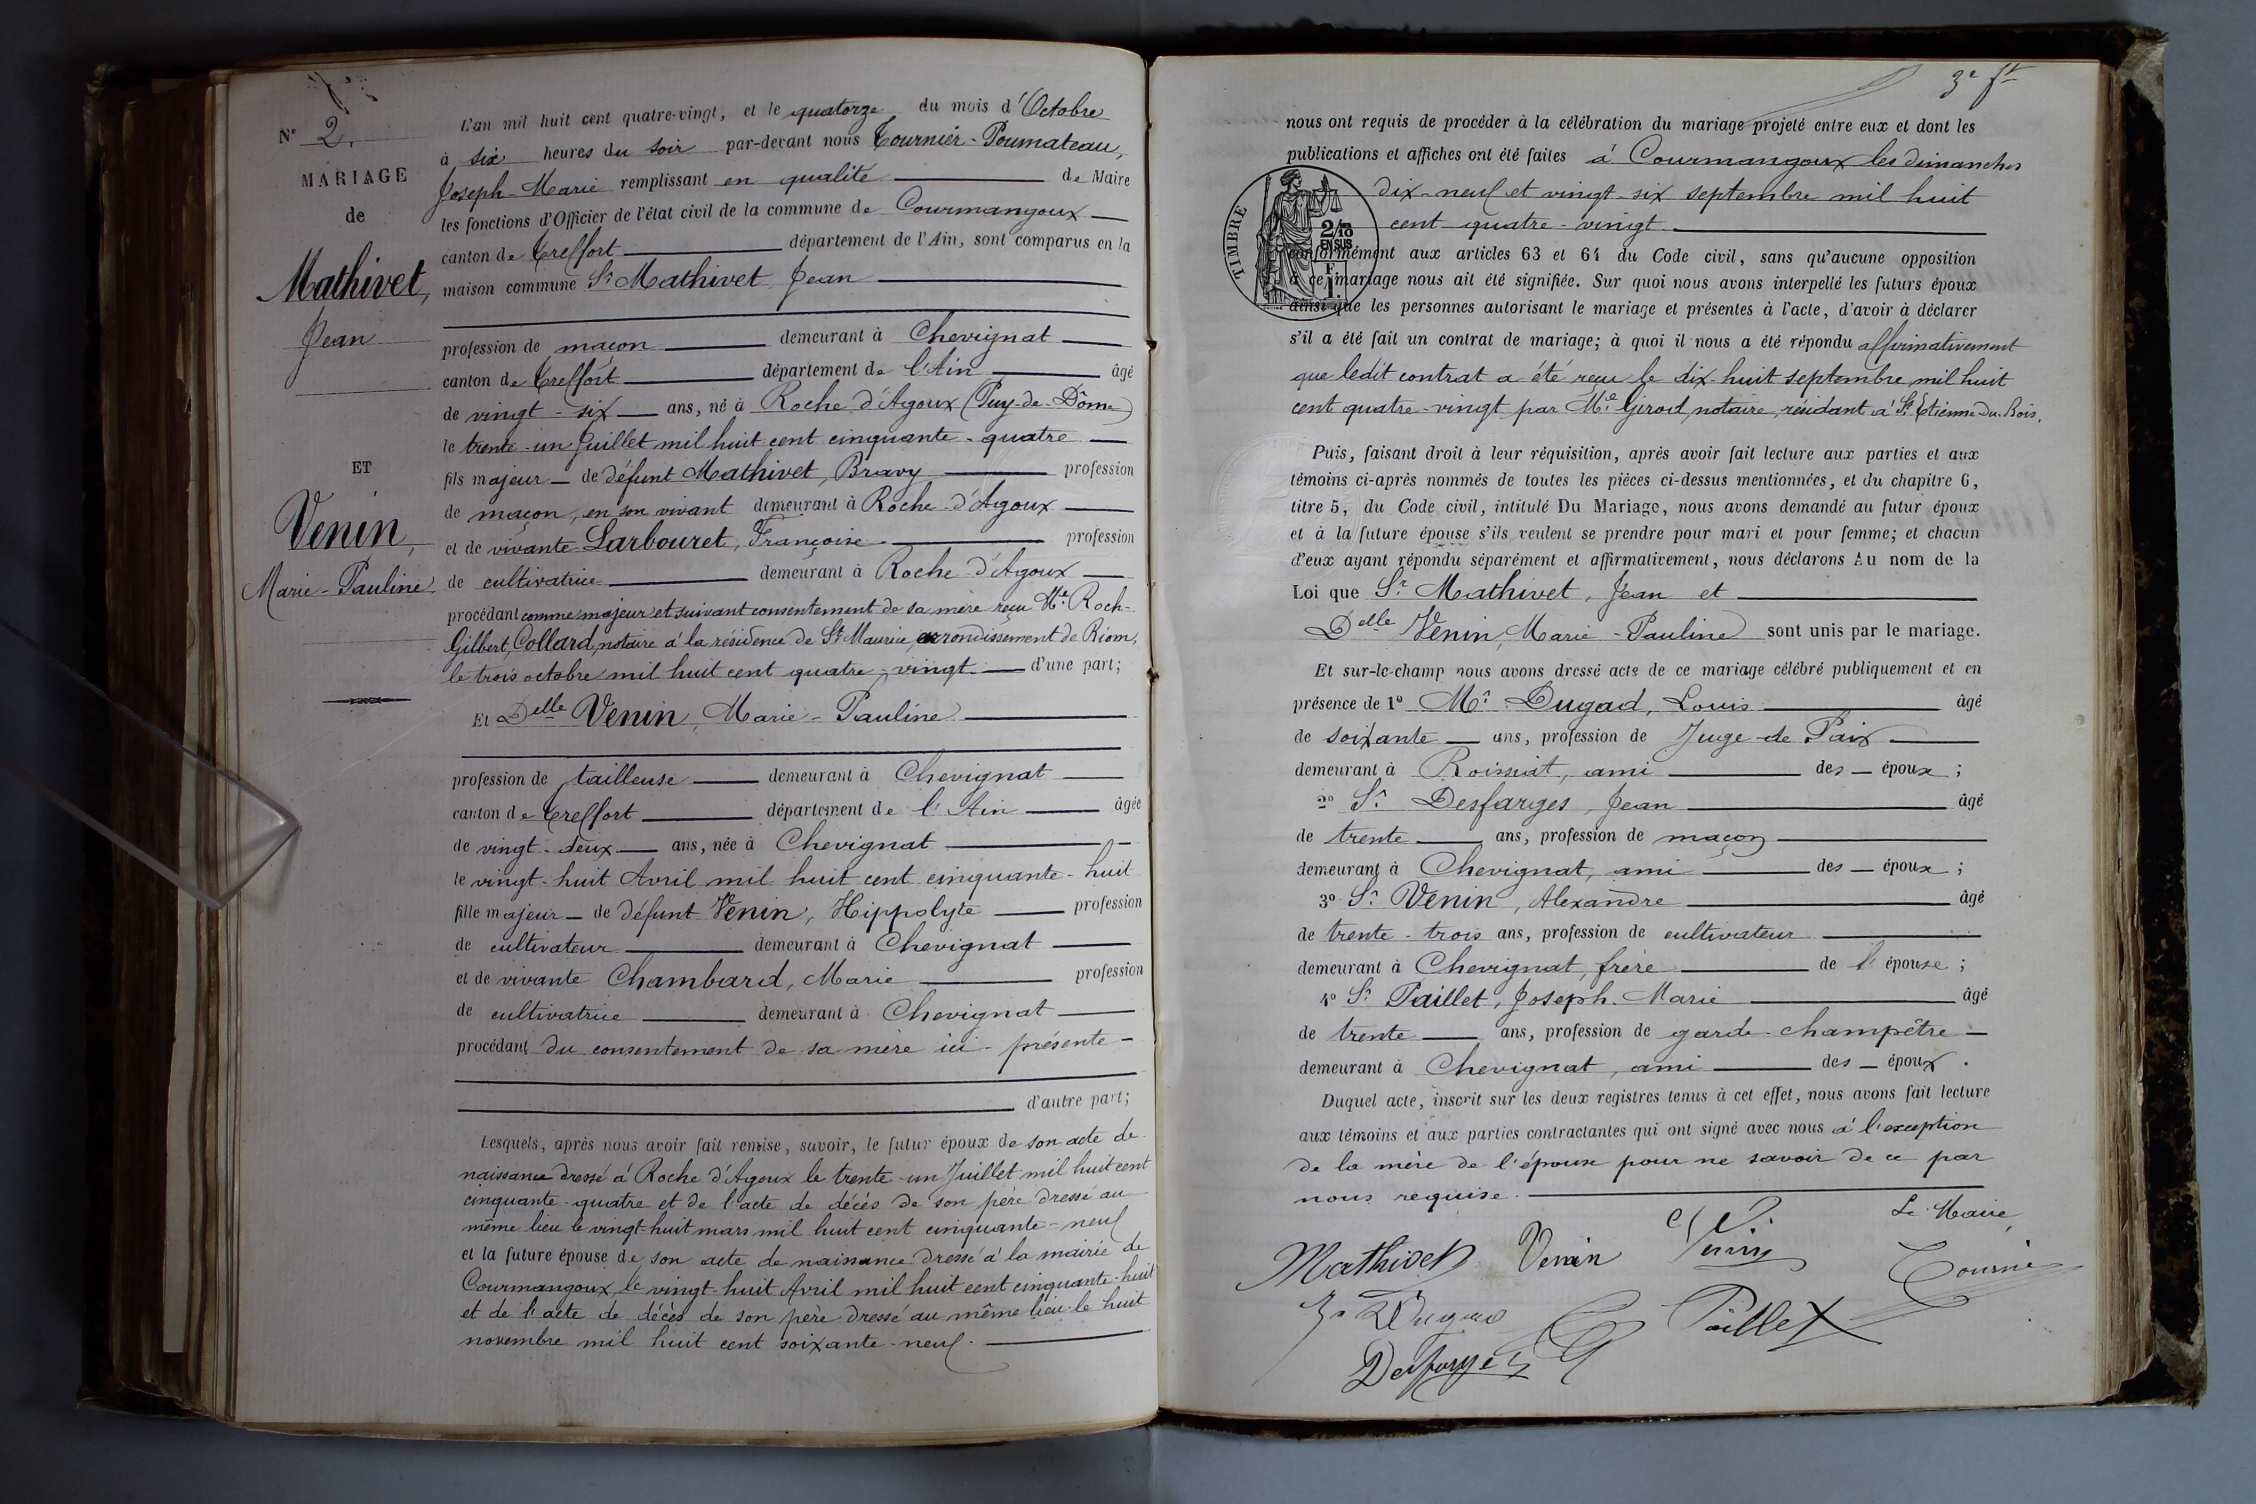 N° 2.
MARIAGE
de
Mathivet,
Jean
ET
Venin,
Marie-Pauline
L'an mil huit cent quatre-vingt, et le quatorze du mois d'Octobre
à six heures du soir par-devant nous Tournier-Poumateau,
Joseph-Marie remplissant en qualité de Maire
les fonctions d'Officier de l'état civil de la commune de Courmangoux
canton de Treffort département de l'Ain, sont comparus en la
maison commune Sr Mathivet Jean
profession de maçon demeurant à Chevignat
canton de Treffort département de l'Ain âgé
de vingt-six ans, né à Roche d'Agoux (Puy-de-Dôme)
le trente-un Juillet mil huit cent cinquante-quatre
fils majeur de défunt Mathivet, Bravy profession
de maçon, en son vivant demeurant à Roche-d'Agoux
et de vivante Larbouret, Françoise profession
de cultivatrice demeurant à Roche-d'Agoux
procédant comme majeur et suivant consentement de sa mère reçu Me Roch-
Gilbert, Collard, notaire à la résidence de St Maurice, arrondissement de Riom,
le trois octobre mil huit cent quatre-vingt d'une part;
Et Delle Venin, Marie-Pauline
profession de tailleuse demeurant à Chevignat
canton de Treffort département de l'Ain âgée
de vingt-deux ans, née à Chevignat
le vingt-huit Avril mil huit cent cinquante-huit
fille majeur de défunt Venin, Hippolyte profession
de cultivateur demeurant à Chevignat
et de vivante Chambard, Marie profession
de cultivatrice demeurant à Chevignat
procédant du consentement de sa mère ici-présente
d'autre part;
Lesquels, après nous avoir fait remise, savoir, le futur époux de son acte de
naissance dressé à Roche d'Agoux le trente-un Juillet mil huit cent
cinquante-quatre et de l'acte de décès de son père dressé au
même lieu le vingt-huit mars mil huit cent cinquante-neuf
et la future épouse de son acte de naissance dressé à la mairie de
Courmangoux le vingt-huit Avril mil huit cent cinquante-huit
et de l'acte de décès de son père dressé au même lieu le huit
novembre mil huit cent soixante-neuf.
3e ft
nous ont requis de procéder à la célébration du mariage projeté entre eux et dont les
publications et affiches ont été faites à Courmangoux les dimanches
dix-neuf et vingt-six septembre mil huit
cent quatre-vingt
TIMBRE
2/10
EN SUS
conformément aux articles 63 et 64 du Code civil, sans qu'aucune opposition
à ce mariage nous ait été signifiée. Sur quoi nous avons interpellé les futurs époux
ainsi que les personnes autorisant le mariage et présentes à l'acte, d'avoir à déclarer
s'il a été fait un contrat de mariage; à quoi il nous a été répondu affirmativement
que ledit contrat a été reçu le dix-huit septembre mil huit
cent quatre-vingt par Me Girod, notaire, résidant à St Etienne Du Bois.
Puis, faisant droit à leur réquisition, après avoir fait lecture aux parties et aux
témoins ci-après nommés de toutes les pièces ci-dessus mentionnées, et du chapitre 6,
titre 5, du Code civil, intitulé Du Mariage, nous avons demandé au futur époux
et à la future épouse s'ils veulent se prendre pour mari et pour femme; et chacun
d'eux ayant répondu séparément et affirmativement, nous déclarons Au nom de la
Loi que Sr Mathivet, Jean et
Delle Venin, Marie-Pauline sont unis par le mariage.
Et sur-le-champ nous avons dressé acte de ce mariage célébré publiquement et en
présence de 1° Mr Dugad, Louis âgé
de soixante ans, profession de Juge de Paix
demeurant à Roissiat, ami des époux;
2° Sr Desfarges, Jean âgé
de trente ans, profession de maçon
demeurant à Chevignat, ami des époux;
3° Sr Venin, Alexandre âgé
de trente-trois ans, profession de cultivateur
demeurant à Chevignat, frère de l'épouse;
4° Sr Paillet, Joseph-Marie âgé
de trente ans, profession de garde-champêtre
demeurant à Chevignat, ami des époux.
Duquel acte, inscrit sur les deux registres tenus à cet effet, nous avons fait lecture
aux témoins et aux parties contractantes qui ont signé avec nous à l'exception
de la mère de l'épouse pour ne savoir de ce par
nous requise.
Le Maire,
Mathivet Venin Venin Tournier
Dugad Paillet
Desfarges